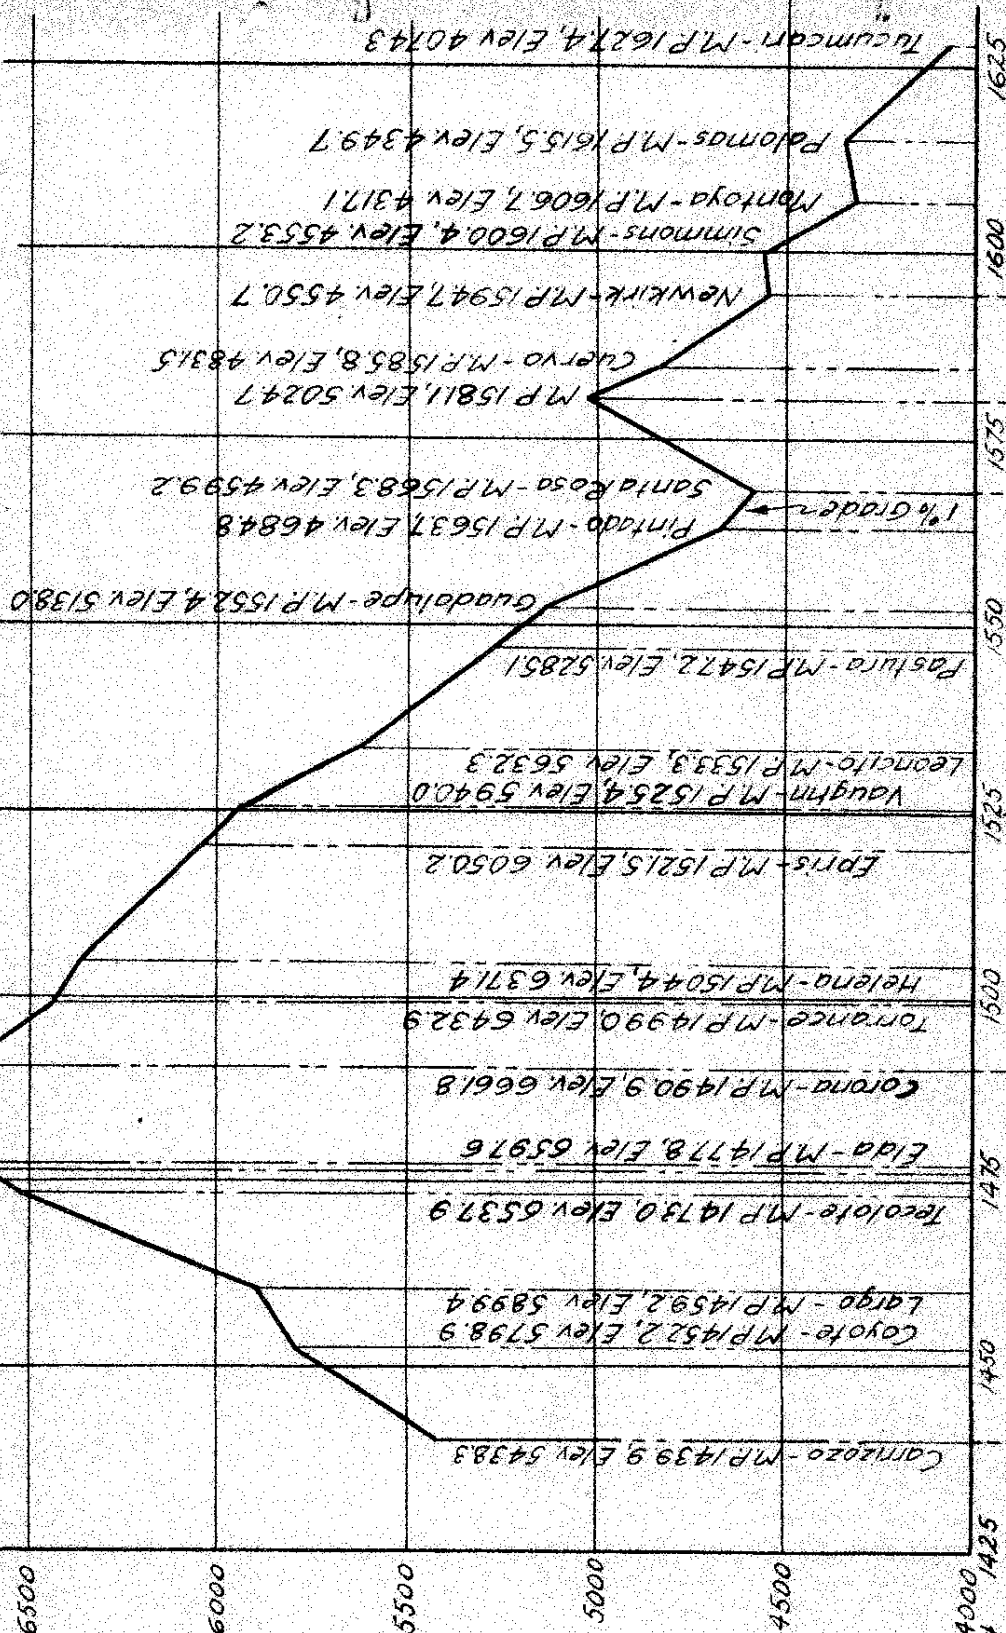 Tucumcari - M.P. 1627.4, Elev 4074.3
Palomas - M.P. 1615.5, Elev. 4349.7
Montoya - M.P. 1606.7, Elev. 4317.1
Simmons - M.P. 1600.4, Elev. 4553.2
Newkirk - M.P. 1594.7, Elev. 4550.7
Cuervo - M.P. 1585.8, Elev. 4831.5
M.P. 1581.1, Elev 5024.7
Santa Rosa - M.P. 1568.3, Elev 4599.2
1% Grade
Pintado - M.P. 1563.7, Elev. 4684.8
Guadalupe - M.P. 1552.4, Elev 5138.0
Pastura - M.P. 1547.2, Elev. 5285.1
Leoncito - M.P. 1533.3, Elev 5632.3
Vaughn - M.P. 1525.4, Elev 5940.0
Epris - M.P. 1521.5, Elev 6050.2
Helena - M.P. 1504.4, Elev. 6371.4
Torrance - M.P. 1499.0, Elev 6432.9
Corona - M.P. 1490.9, Elev. 6661.8
Elda - M.P. 1477.8, Elev. 6597.6
Tecolote - M.P. 1473.0, Elev 6537.9
Largo - M.P. 1459.2, Elev 5899.4
Coyote - M.P. 1452.2, Elev 5798.9
Carrizozo - M.P. 1439.9, Elev 5438.3
1625
1600
1575
1550
1525
1500
1475
1450
1425
6500
6000
5500
5000
4500
4000